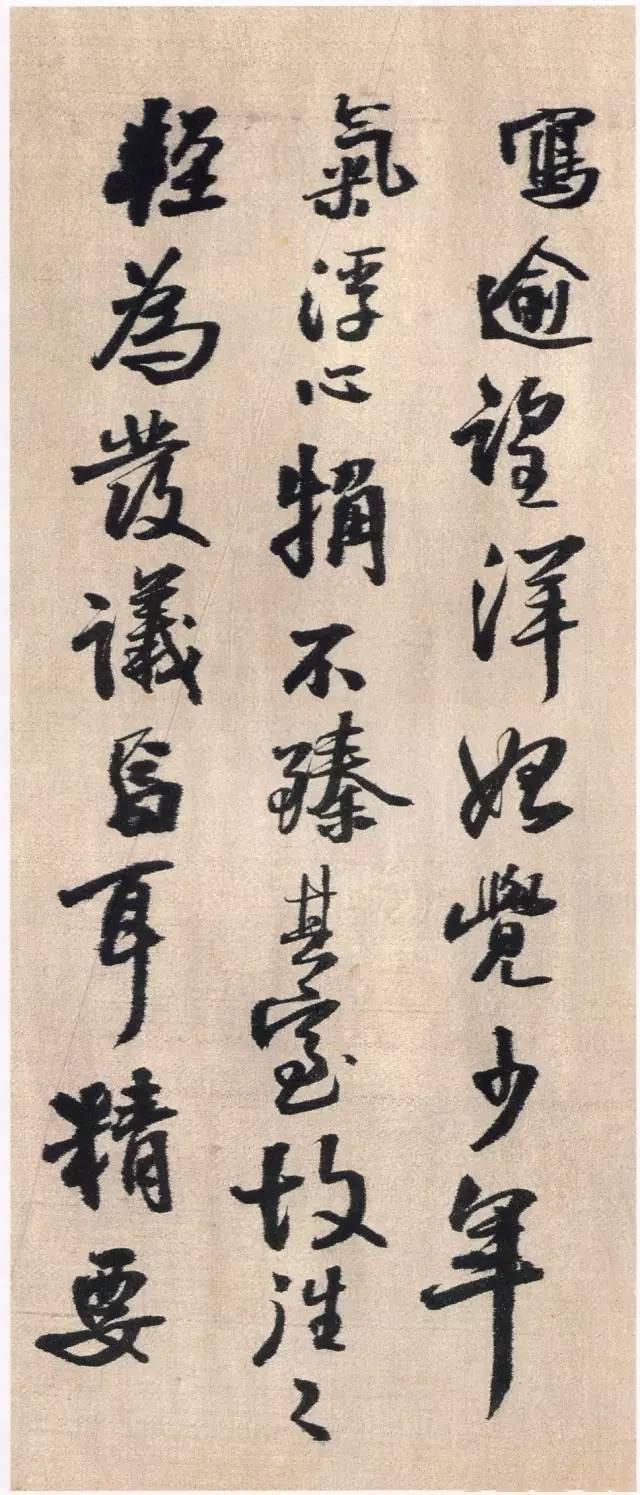 寫逾望洋始覺少年
氣浮心觕不臻其室故往〻
輕為發議耳精要